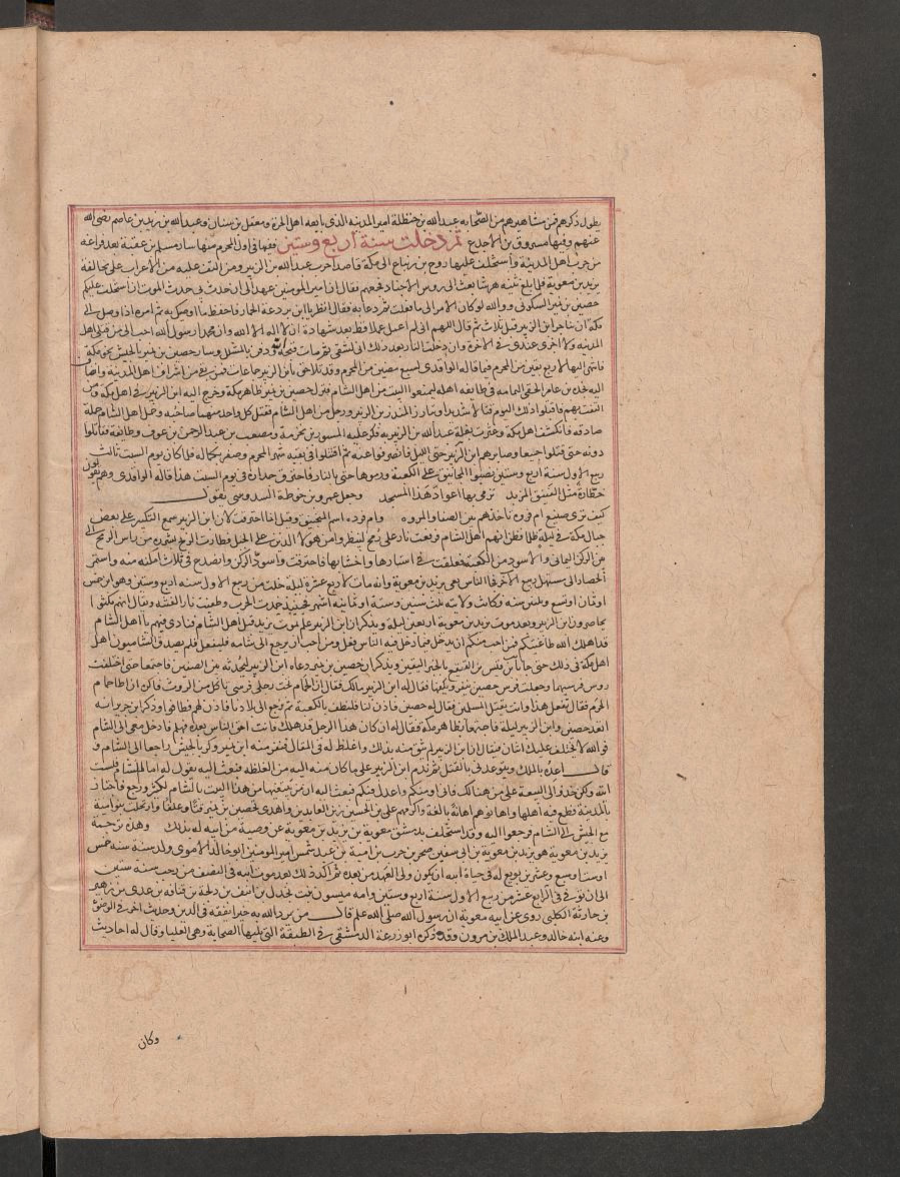 يطول ذكرهم فمن مشاهيرهم من الصحابه عبد الله بن حنظلة امير المدينه الذى بايعه اهل الحرة ومعقل بن سنان وعبد الله بن زيد بن عاصم رضى الله
عنهم وفيها مسروق بن الاجدع ثم دخلت سنة اربع وستين ففيها فى اول المحرم منها سار مسلم بن عقبة بعد فراغه
من حرب اهل المدينة واستخلف عليها روح بن زنباع الى مكة قاصدا حرب عبد الله بن الزبير ومن التف عليه من الاعراب على مخالفة
يزيد بن معوية فلما بلغ ثنية هرشا بعث الى روس الاجناد فجمعهم فقال ان امير المومنين عهد الى ان حدث بى حدث الموت ان استخلف عليكم
حصين بن نمير السكونى ووالله لو كان الامر الى ما فعلت ثم دعا به فقال انظر يا ابن بردعة الحمار فاحفظ ما اوصيك به ثم امره اذا وصل الى
مكة ان يناجز ابن الزبير قبل ثلاث ثم قال اللهم انى لم اعمل عملا قط بعد شهادة ان لا اله الا الله وان محمدا رسول الله احب الى من قتلى اهل
المدينه ولا اجزى عندى فى الاخرة وان دخلت النار بعد ذلك انى لشقى ثم مات قبحه الله ودفن بالمشلل وسار حصين بن نمير بالجيش نحو مكة
فانتهى اليها لاربع بقين من المحرم فيما قاله الواقدى لسبع مضين من المحرم وقد تلاحق بابن الزبير جماعات ممن بقى من اشراف اهل المدينة وانضاف
اليه نجدة بن عامر الحنفى اليمامه فى طائفه اهله ليمنعوا البيت من اهل الشام فنزل حصين بن نمير ظاهر مكة وخرج اليه ابن الزبير فى اهل مكة ومن
التف بهم فاقتتلوا ذلك اليوم قتالا شديدا وتبارز المنذر بن الزبير ورجل من اهل الشام فقتل كل واحد منهما صاحبه وحمل اهل الشام حملة
صادقه فانكشف اهل مكة وعثرت بغلة عبد الله بن الزبير به فكر عليه المسور بن مخرمة ومصعب بن عبد الرحمن بن عوف وطائفة فقاتلوا
دونه حتى قتلوا جميعا وصابرهم ابن الزبير حتى الليل فانصرفوا عنه ثم اقتتلوا فى بقية شهر المحرم وصفر بكماله فلما كان يوم السبت ثالث
ربيع الاول سنة اربع وستين نصبوا المجانيق على الكعبة ورموها حتى بالنار فاحترق جدارة فى يوم السبت هذا قاله الواقدى وهم يقولون
خطارة مثل الفنيق المزبد نرمى بها اعواد هذا المسجد وجعل عمرو بن حوطة السدوسى يقول
كيف ترى صنيع ام فروه تاخذهم بين الصفا والمروه وام فروه اسم المنجنيق وقيل انما احترقت لان ابن الزبير سمع التكبير على بعض
جبال مكة فى ليلة ظلما فظن انهم اهل الشام فرفعت نار على رمح لينظروا من هولا الذين على الجبل فطارت الريح بشررة من راس الرمح الى
بين الركن اليمانى والاسود من الكعبة فعلقت فى استارها واخشابها فاحترقت واسود الركن وانصدع فى ثلاث امكنه منه واستمر
الحصار الى مستهل ربيع الاخر فجا الناس نعى يزيد بن معوية وانه مات لاربع عشرة ليلة خلت من ربيع الاول سنه اربع وستين وهو ابن خمس
او ثمان او تسع وثلثين سنه وكانت ولايته ثلث سنين وستة او ثمانية اشهر فحينئذ خمدت الحرب وطفئت نار الفتنه ويقال انهم مكثوا
يحاصرون ابن الزبير بعد موت يزيد بن معوية اربعين ليلة ويذكر ان ابن الزبير علم بموت يزيد قبل اهل الشام فنادى فيهم يا اهل الشام
قد اهلك الله طاغيتكم فمن احب منكم ان يدخل فيما دخل فيه الناس فليفعل ومن احب ان يرجع الى شامه فليفعل فلم يصدق الشاميون اهل
اهل مكة فى ذلك حتى جا ثابت بن قيس بن القيقع بالخبر اليقين ويذكر ان حصين بن نمير دعاه ابن الزبير ليحدثه بين الصفين فاجتمعا حتى اختلفت
روس فرسيهما وجعلت فرس حصين تنفر ويكفها فقال له ابن الزبير مالك فقال ان الحمام تحت رجلى فرسى تاكل من الروث فاكره ان اطا حمام
الحرم فقال تفعل هذا وانت تقتل المسلمين فقال له حصين فاذن لنا فلنطف بالكعبة ثم نرجع الى بلادنا فاذن لهم فطافوا وذكر ابن جرير انه
اتعد حصين وابن الزبير ليلة فاجتمعا بظاهر مكة فقال له ان كان هذا الرجل قد هلك فانت احق الناس بعده فهلم فادخل معى الى الشام
فوالله لا يختلف عليك اثنان فيقال ان ابن الزبير لم يثق منه بذلك واغلظ له فى المقال فنفر منه ابن نمير وكر بالجيش راجعا الى الشام و
قال اعده بالملك ويتوعدنى بالقتل ثم ندم ابن الزبير على ما كان منه اليه من الغلظه فبعث اليه يقول له اما الشام فلست
اتيه ولكن خذ لى البيعة على من هنالك فانى اومنكم واعدل فيكم فبعث اليه ان من يبتغيها من هذا البيت بالشام لكثير ورجع فاجتاز
بالمدينة فطمع فيه اهلها واهانوهم اهانة بالغة واكرمهم على بن الحسين زين العابدين واهدى لحصين بن نمير قتا وعلفا وارتحلت بنو امية
مع الجيش الى الشام فرجعوا اليه وقد استخلف بدمشق معوية بن يزيد بن معوية عن وصية من ابيه له بذلك وهذه ترجمة
يزيد بن معوية هو يزيد بن معوية بن ابى سفين صخر بن حرب بن امية بن عبد شمس امير المومنين ابو خالد الاموى ولد سنة سنه خمس
او ست او سبع وعشرين بويع له فى حياة ابيه ان يكون ولى العهد من بعده ثم اكد ذلك بعد موت ابيه فى النصف من رجب سنة ستين
الى ان توفى فى الرابع عشر من ربيع الاول سنة اربع وستين وامه ميسون بنت بجدل بن انيف بن دلجة بن قنافة بن عدى بن زهير
بن حارثة الكلبى روى عن ابيه معوية ان رسول الله صلى الله علم قال من يرد الله به خيرا يفقه فى الدين وحديث اخر فى الوضو
وعنه ابنه خالد وعبد الملك بن مرون وقد ذكره ابو زرعة الدمشقى فى الطبقة التى يليها الصحابة وهى العليا وقال له احاديث
وكان